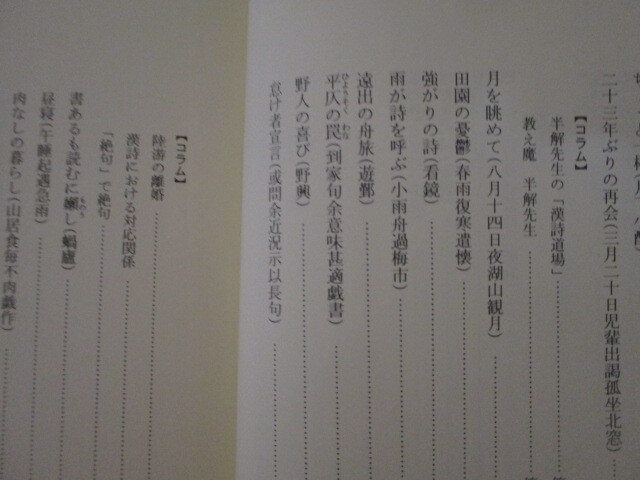 二十三年ぶりの再会(三月二十日児輩出謁孤坐北窓)
【コラム】
半解先生の「漢詩道場」
教え魔 半解先生
月を眺めて(八月十四日夜湖山観月)
田園の憂鬱(春雨復寒遣懐)
強がりの詩(看鏡)
雨が詩を呼ぶ(小雨舟過梅市)
遠出の舟旅(遊鄞)
平仄の罠(到家旬余意味甚適戯書)
野人の喜び(野興)
怠け者宣言(或問余近況示以長句)
【コラム】
陸游の離婚
漢詩における対応関係
「絶句」で絶句
書あるも読むに嬾し(蝸廬)
昼寝(午睡起遇急雨)
肉なしの暮らし(山居食毎不肉戯作)